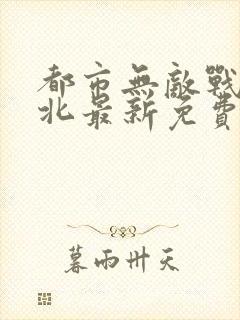 都市無敵戰
北最新免費
暮雨卅天